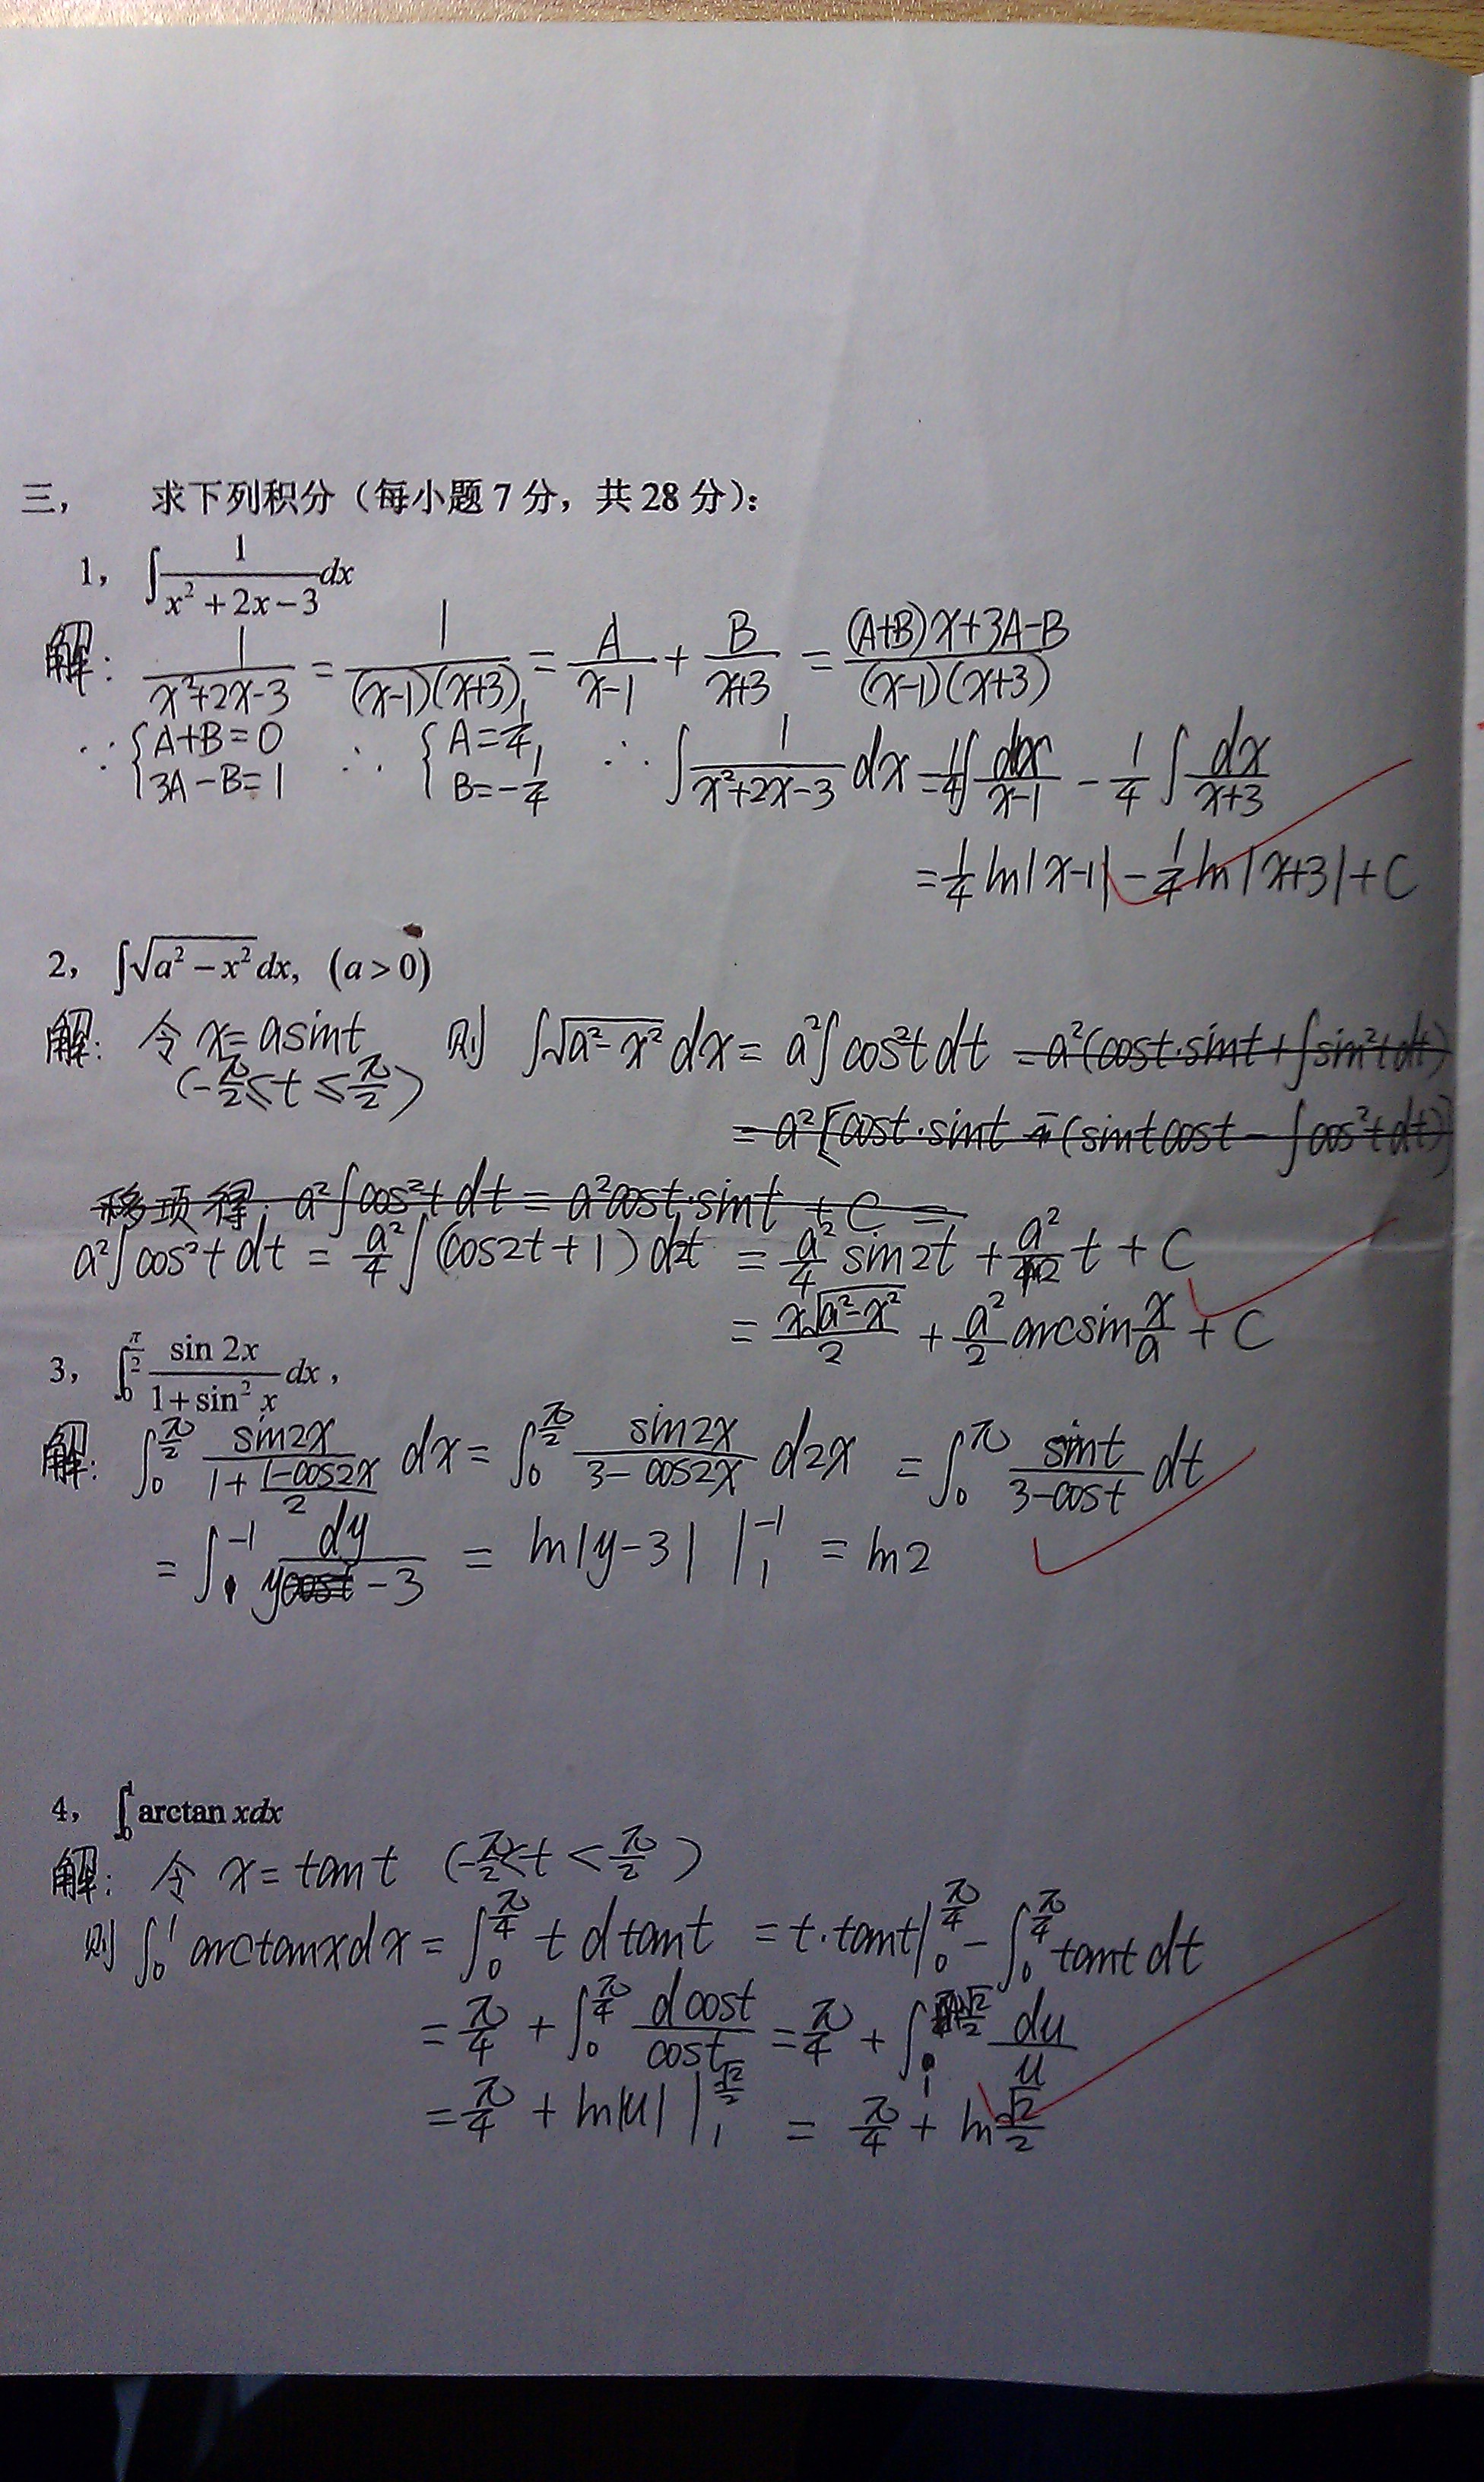 三， 求下列积分（每小题 7 分，共 28 分）：
1， ∫ 1/(x² + 2x − 3) dx
解： 1/(x²+2x-3) = 1/((x-1)(x+3)) = A/(x-1) + B/(x+3) = ((A+B)x+3A-B)/((x-1)(x+3))
∵ {A+B=0 3A-B=1 ∴ {A=1/4, B=-1/4 ∴ ∫ 1/(x²+2x-3) dx = 1/4∫ dx/(x-1) - 1/4 ∫ dx/(x+3)
= 1/4 ln|x-1| - 1/4 ln|x+3| + C
2， ∫√(a² − x²) dx, (a > 0)
解： 令 x = a sint 则 ∫√(a²-x²) dx = a²∫cos²t dt = a²(cost·sint + ∫sin²t dt)
(-π/2 ≤ t ≤ π/2)
= a²[cost·sint - (sint cost - ∫cos²t dt)]
移项得： a²∫cos²t dt = a²cost·sint + C =
a²∫cos²t dt = a²/4 ∫(cos2t+1) d2t = a²/4 sin2t + a²/2 t + C
= x√(a²-x²)/2 + a²/2 arcsin x/a + C
3， ∫₀^(π/2) sin 2x/(1 + sin² x) dx ,
解： ∫₀^(π/2) sin2x/(1+(1-cos2x)/2) dx = ∫₀^(π/2) sin2x/(3-cos2x) d2x = ∫₀^π sint/(3-cost) dt
= ∫₁^(-1) dy/(y-3) = ln|y-3| |₁^(-1) = ln2
4， ∫₀¹ arctan xdx
解： 令 x = tant (-π/2 < t < π/2)
则 ∫₀¹ arctanxdx = ∫₀^(π/4) t d tant = t·tant|₀^(π/4) - ∫₀^(π/4) tant dt
= π/4 + ∫₀^(π/4) dcost/cost = π/4 + ∫₁^(√2/2) du/u
= π/4 + ln|u| |₁^(√2/2) = π/4 + ln √2/2